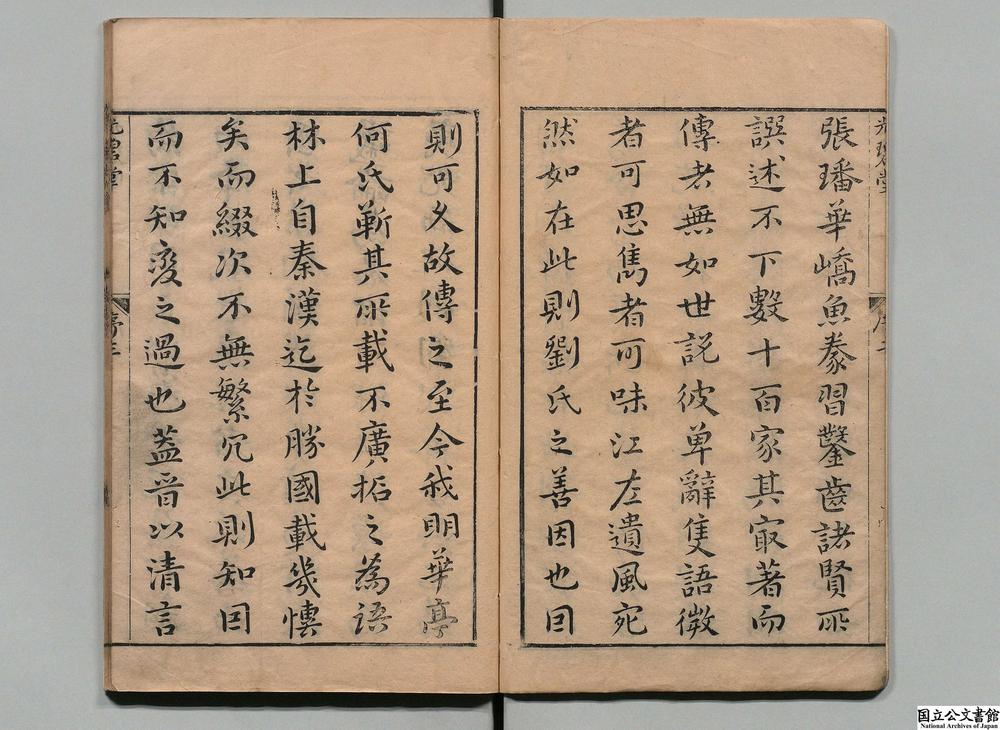 張璠華嶠魚豢習鑿齒諸賢所
譔述不下數十百家其㝡著而
傳者無如世説彼单辭隻語微
者可思雋者可味江左遺風宛
然如在此則劉氏之善因也因
則可久故傳之至今我明華亭
何氏蘄其所載不廣拓之為語
林上自秦漢迄於勝國載幾悽
矣而綴次不無繁冗此則知因
而不知变之過也盖晋以清言
序三
国立公文書館
National Archives of Japan